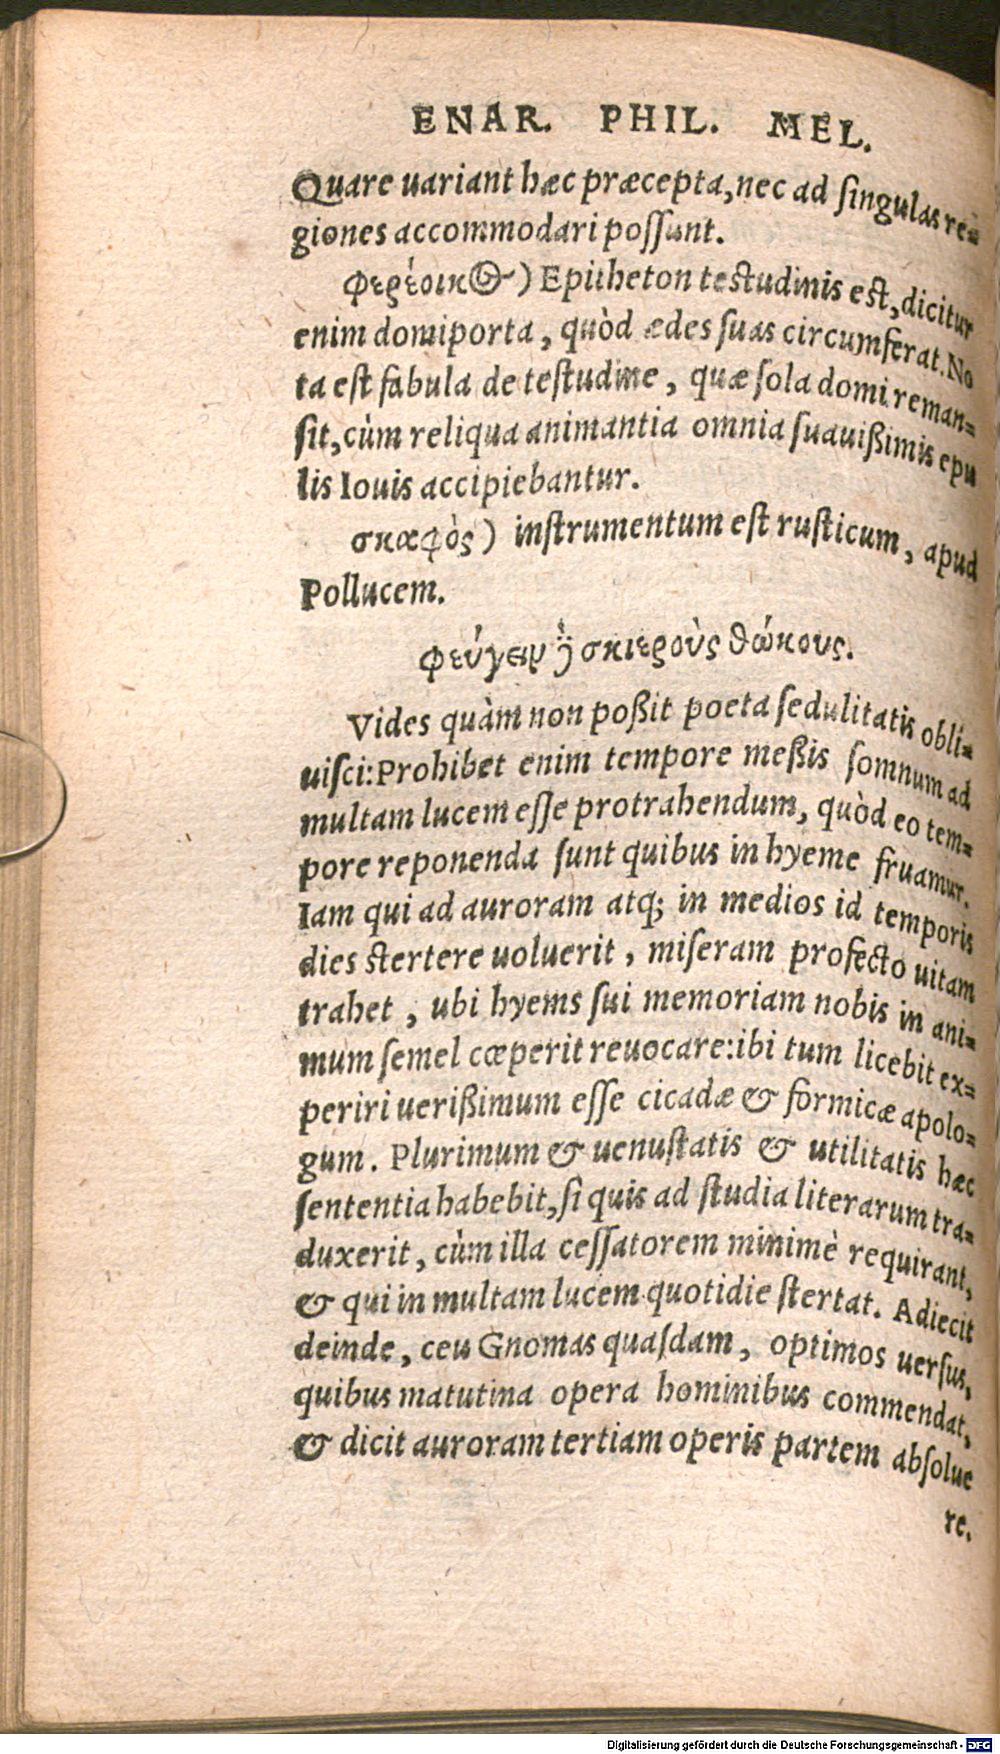 ENAR. PHIL. MEL.
Quare uariant hæc præcepta, nec ad ſingulas re=
giones accommodari poſſunt.
φερέοικος) Epitheton teſtudinis eſt, dicitur
enim domiporta, quòd ædes ſuas circumferat. No
ta eſt fabula de teſtudine, quæ ſola domi reman=
ſit, cùm reliqua animantia omnia ſuauißimis epu
lis Iouis accipiebantur.
σκαφὸς) inſtrumentum eſt ruſticum, apud
Pollucem.
φεύγειν δὲ σκιεροὺς θώκους.
Vides quàm non poßit poeta ſedulitatis obli=
uiſci: Prohibet enim tempore meßis ſomnum ad
multam lucem eſſe protrahendum, quòd eo tem=
pore reponenda ſunt quibus in hyeme fruamur.
Iam qui ad auroram atq; in medios id temporis
dies ſtertere uoluerit, miſeram profecto uitam
trahet, ubi hyems ſui memoriam nobis in ani=
mum ſemel cœperit reuocare: ibi tum licebit ex=
periri uerißimum eſſe cicadæ & formicæ apolo=
gum. Plurimum & uenuſtatis & utilitatis hæc
ſententia habebit, ſi quis ad ſtudia literarum tra=
duxerit, cùm illa ceſſatorem minimè requirant,
& qui in multam lucem quotidie ſtertat. Adiecit
deinde, ceu Gnomas quaſdam, optimos uerſus,
quibus matutina opera hominibus commendat,
& dicit auroram tertiam operis partem abſolue
re.
Digitalisierung gefördert durch die Deutsche Forschungsgemeinschaft - DFG